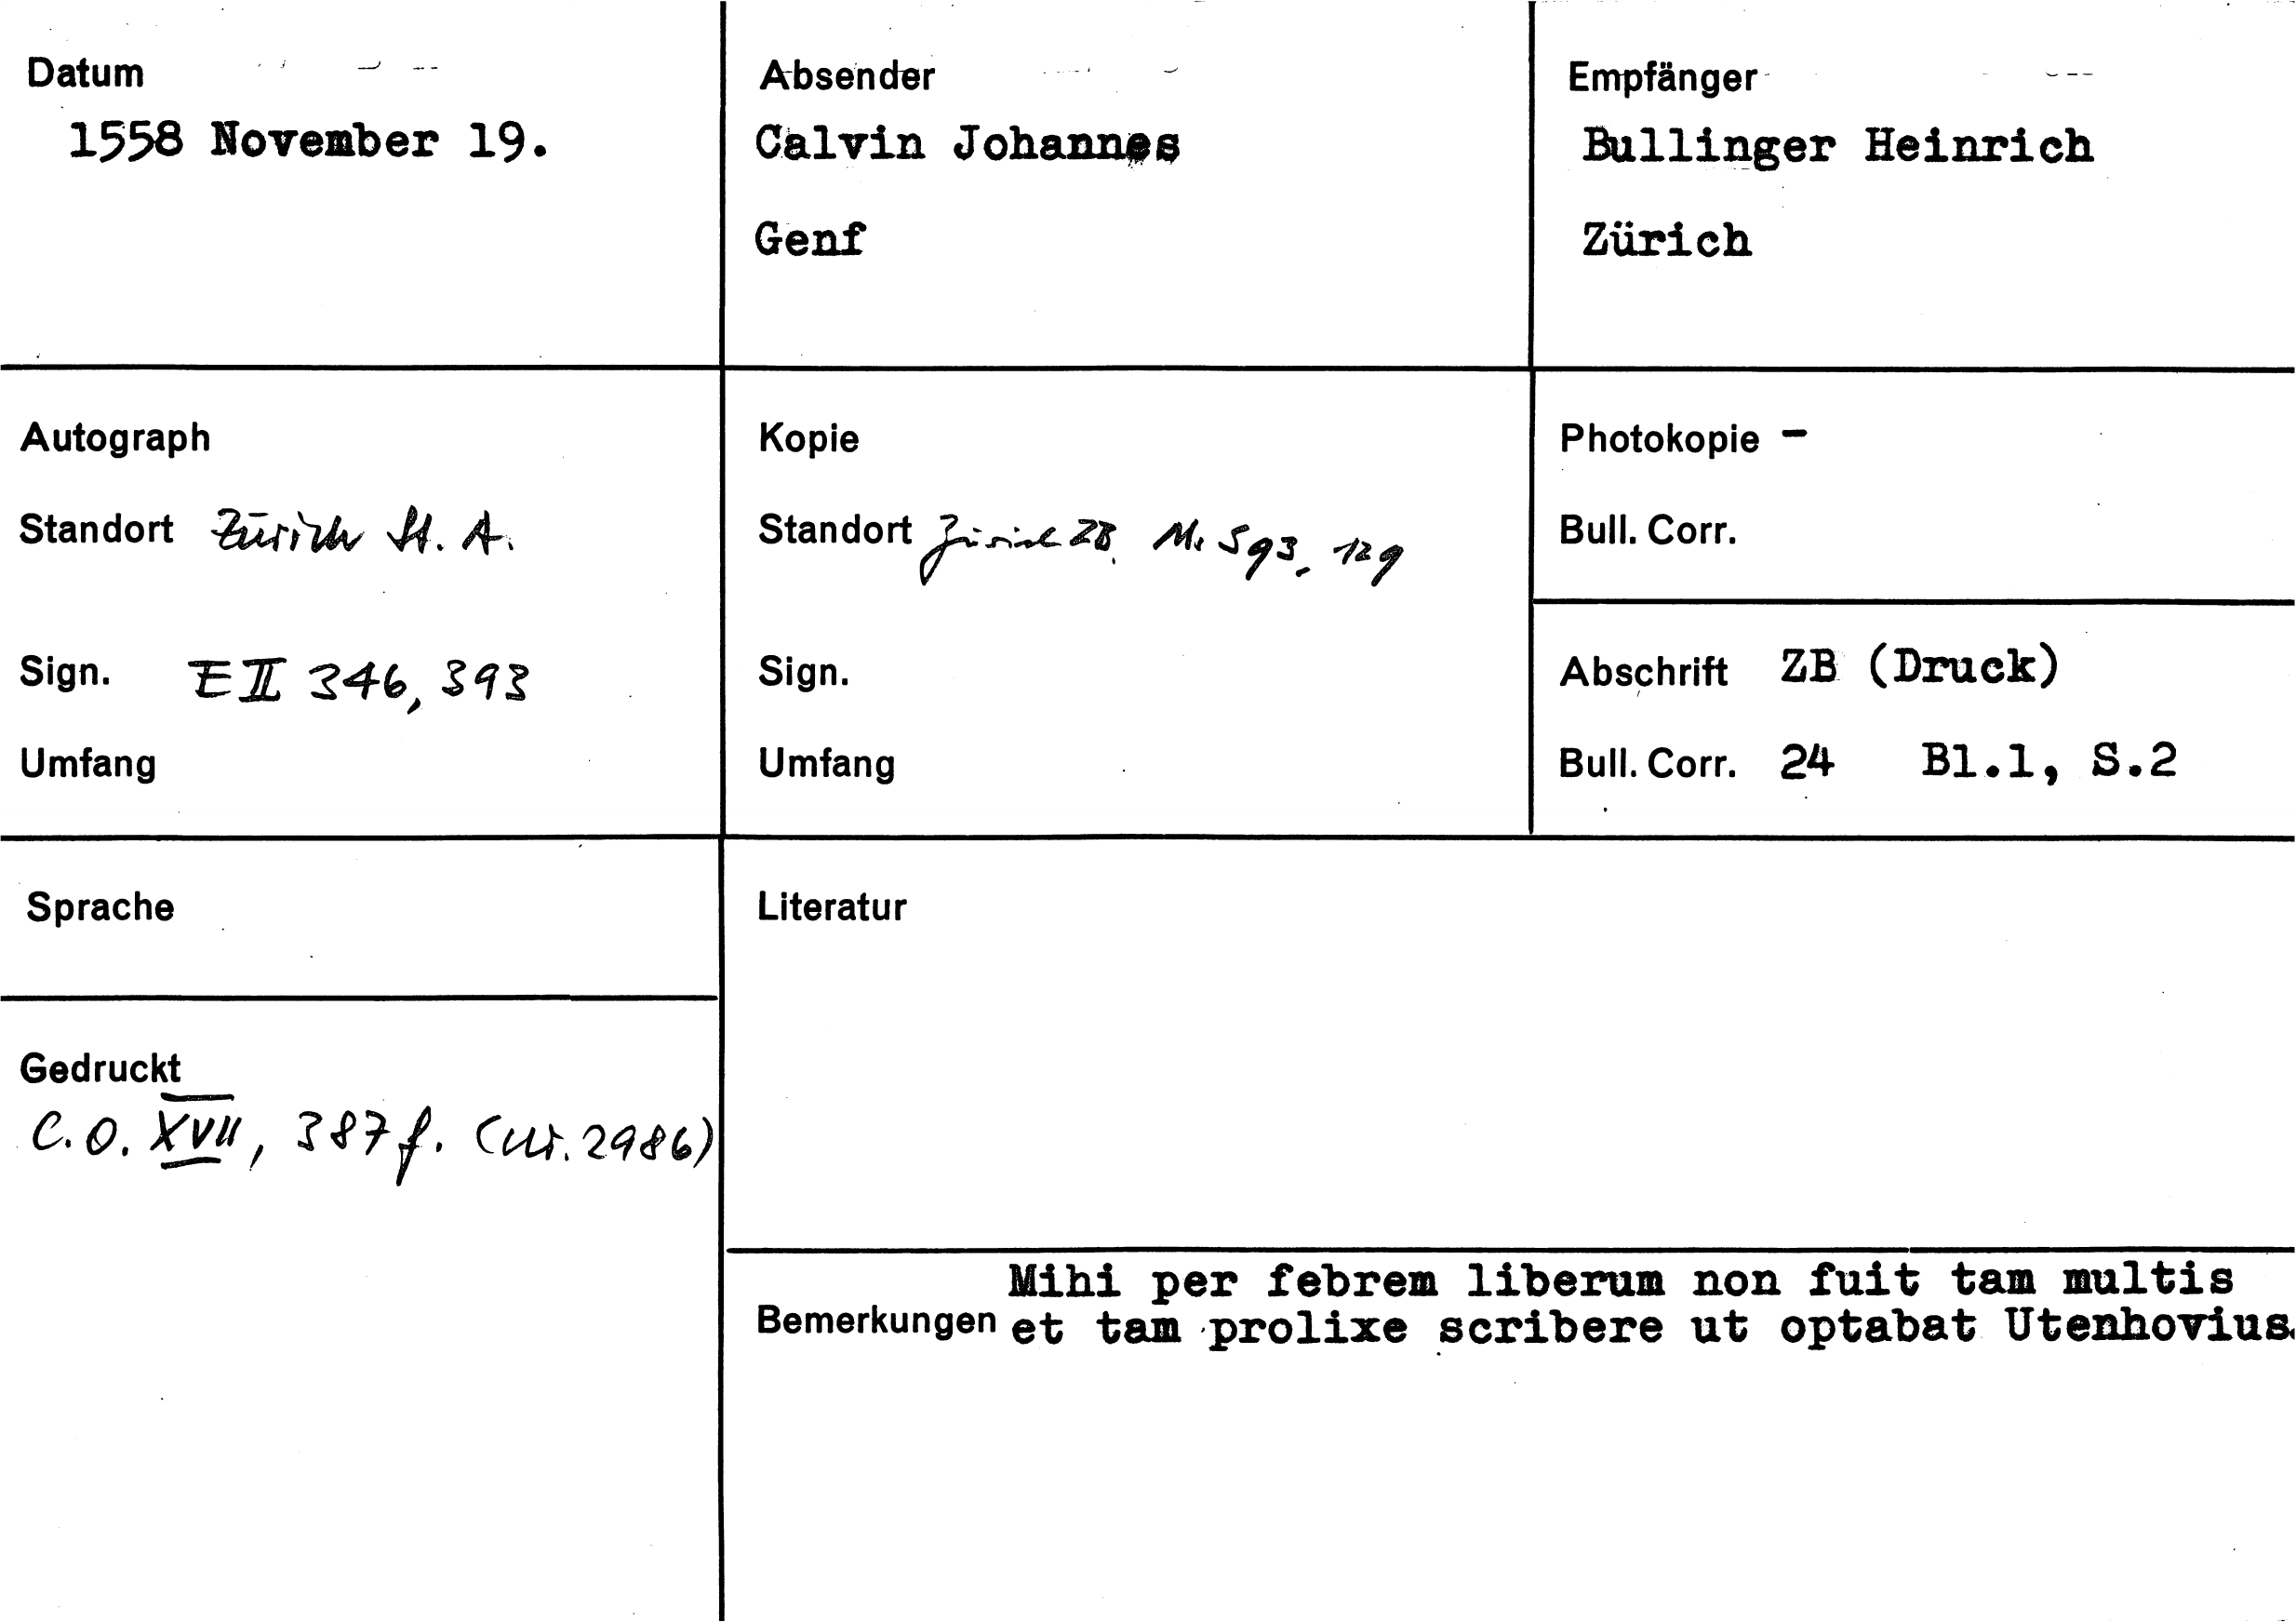 Datum
1558 November 19.
Absender
Calvin Johannes
Genf
Empfänger
Bullinger Heinrich
Zürich
Autograph
Standort Zürich St. A.
Sign. E II 346, 393
Umfang
Kopie
Standort Zürich ZB. Ms S 93, 129
Sign.
Umfang
Photokopie -
Bull. Corr.
Abschrift ZB (Druck)
Bull. Corr. 24 Bl.1, S.2
Sprache
Gedruckt
C.O. XVII, 387 f. (Nr. 2986)
Literatur
Bemerkungen
Mihi per febrem liberum non fuit tam multis
et tam prolixe scribere ut optabat Utenhovius.